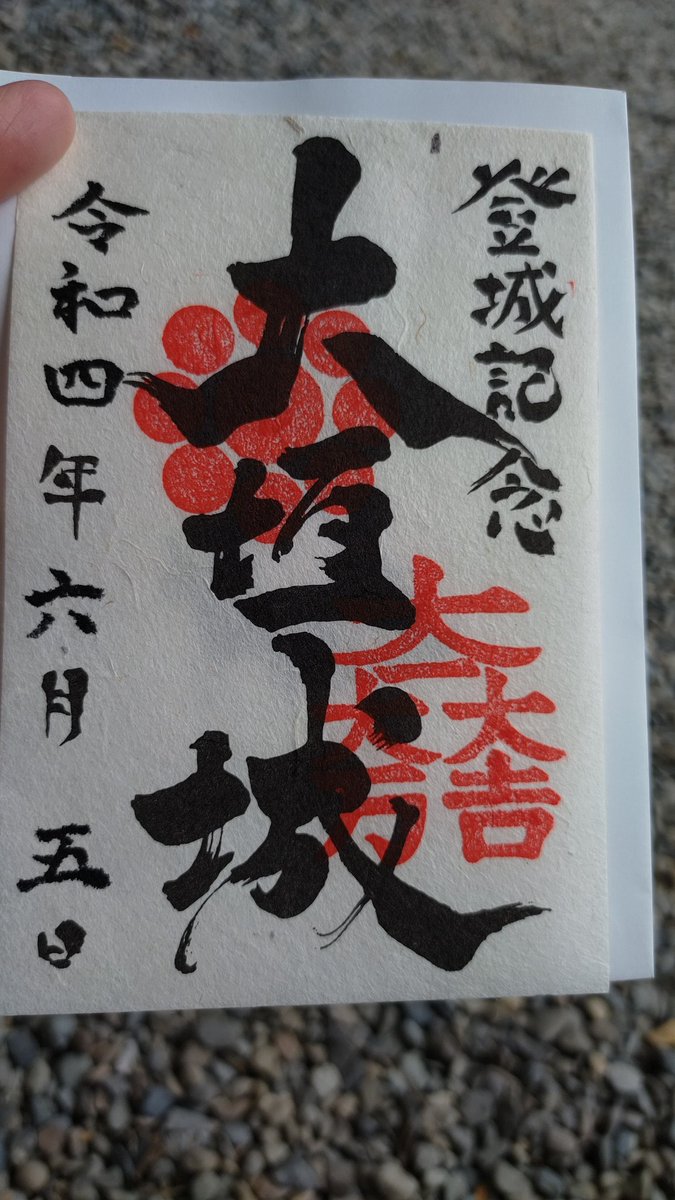 登城記念
大垣城
大一大万大吉
令和四年六月五日